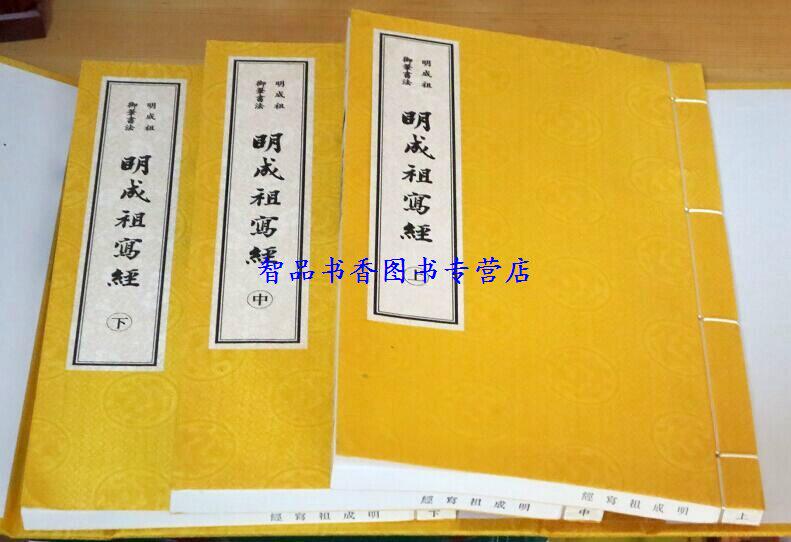 明成祖
御筆書法
明成祖寫經
上
明成祖
御筆書法
明成祖寫經
中
明成祖
御筆書法
明成祖寫經
下
智品书香图书专营店
上
明成祖寫經
中
明成祖寫經
下
明成祖寫經